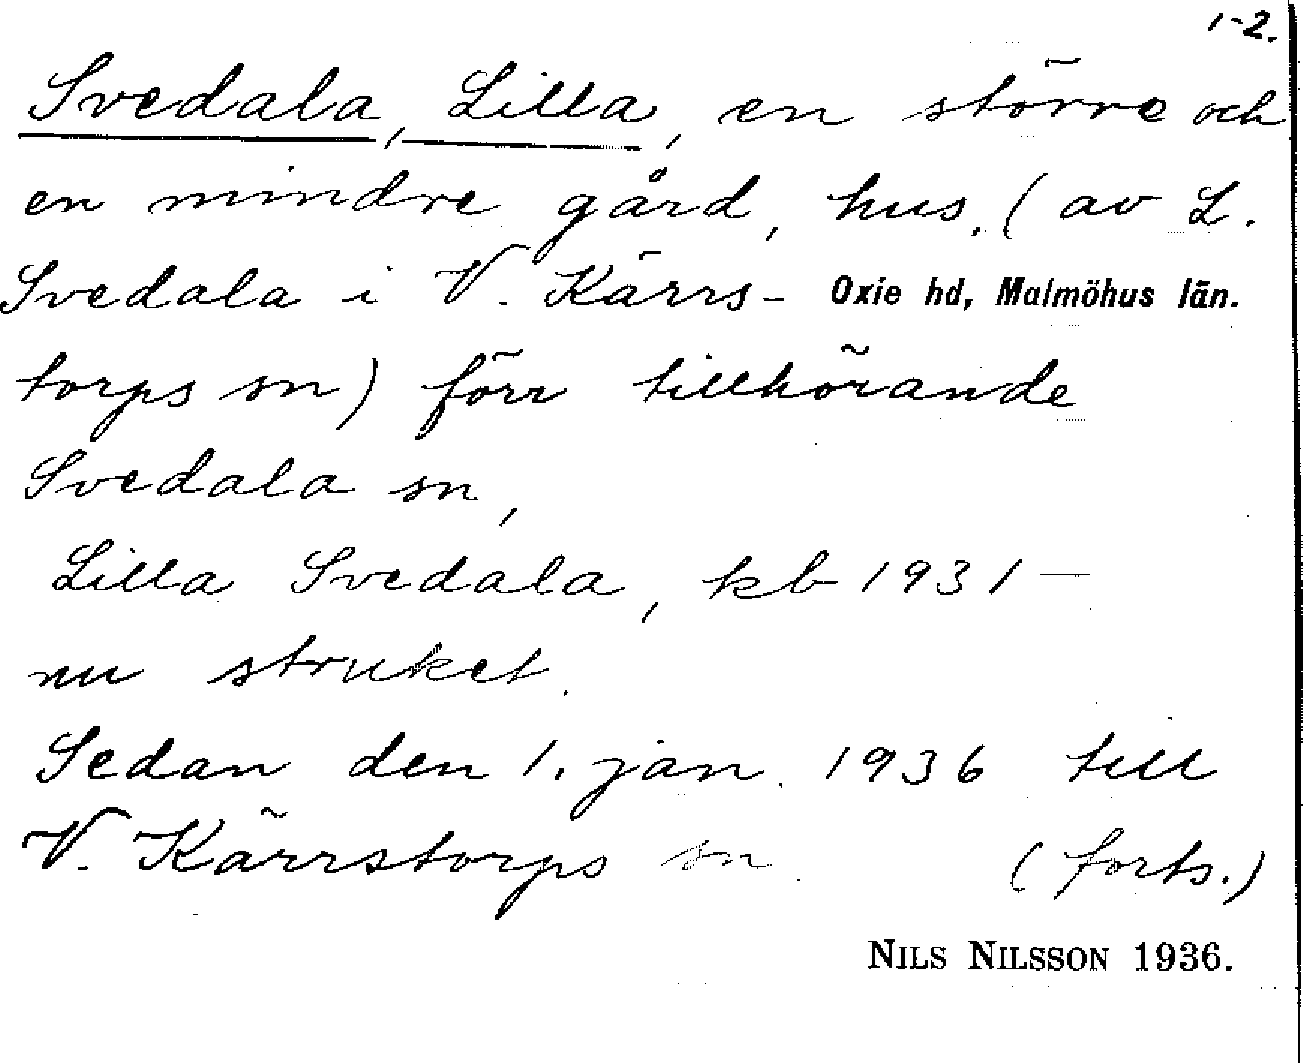 1-2.
Svedala, Lilla, en större och
en mindre gård, hus. (av L.
Svedala i V. Kärrs- Oxie hd, Malmöhus län.
torps sn) förr tillhörande
Svedala sn,
Lilla Svedala, kb 1931 —
nu struket.
Sedan den 1. jan. 1936 till
V. Kärrstorps sn. (forts.)
NILS NILSSON 1936.